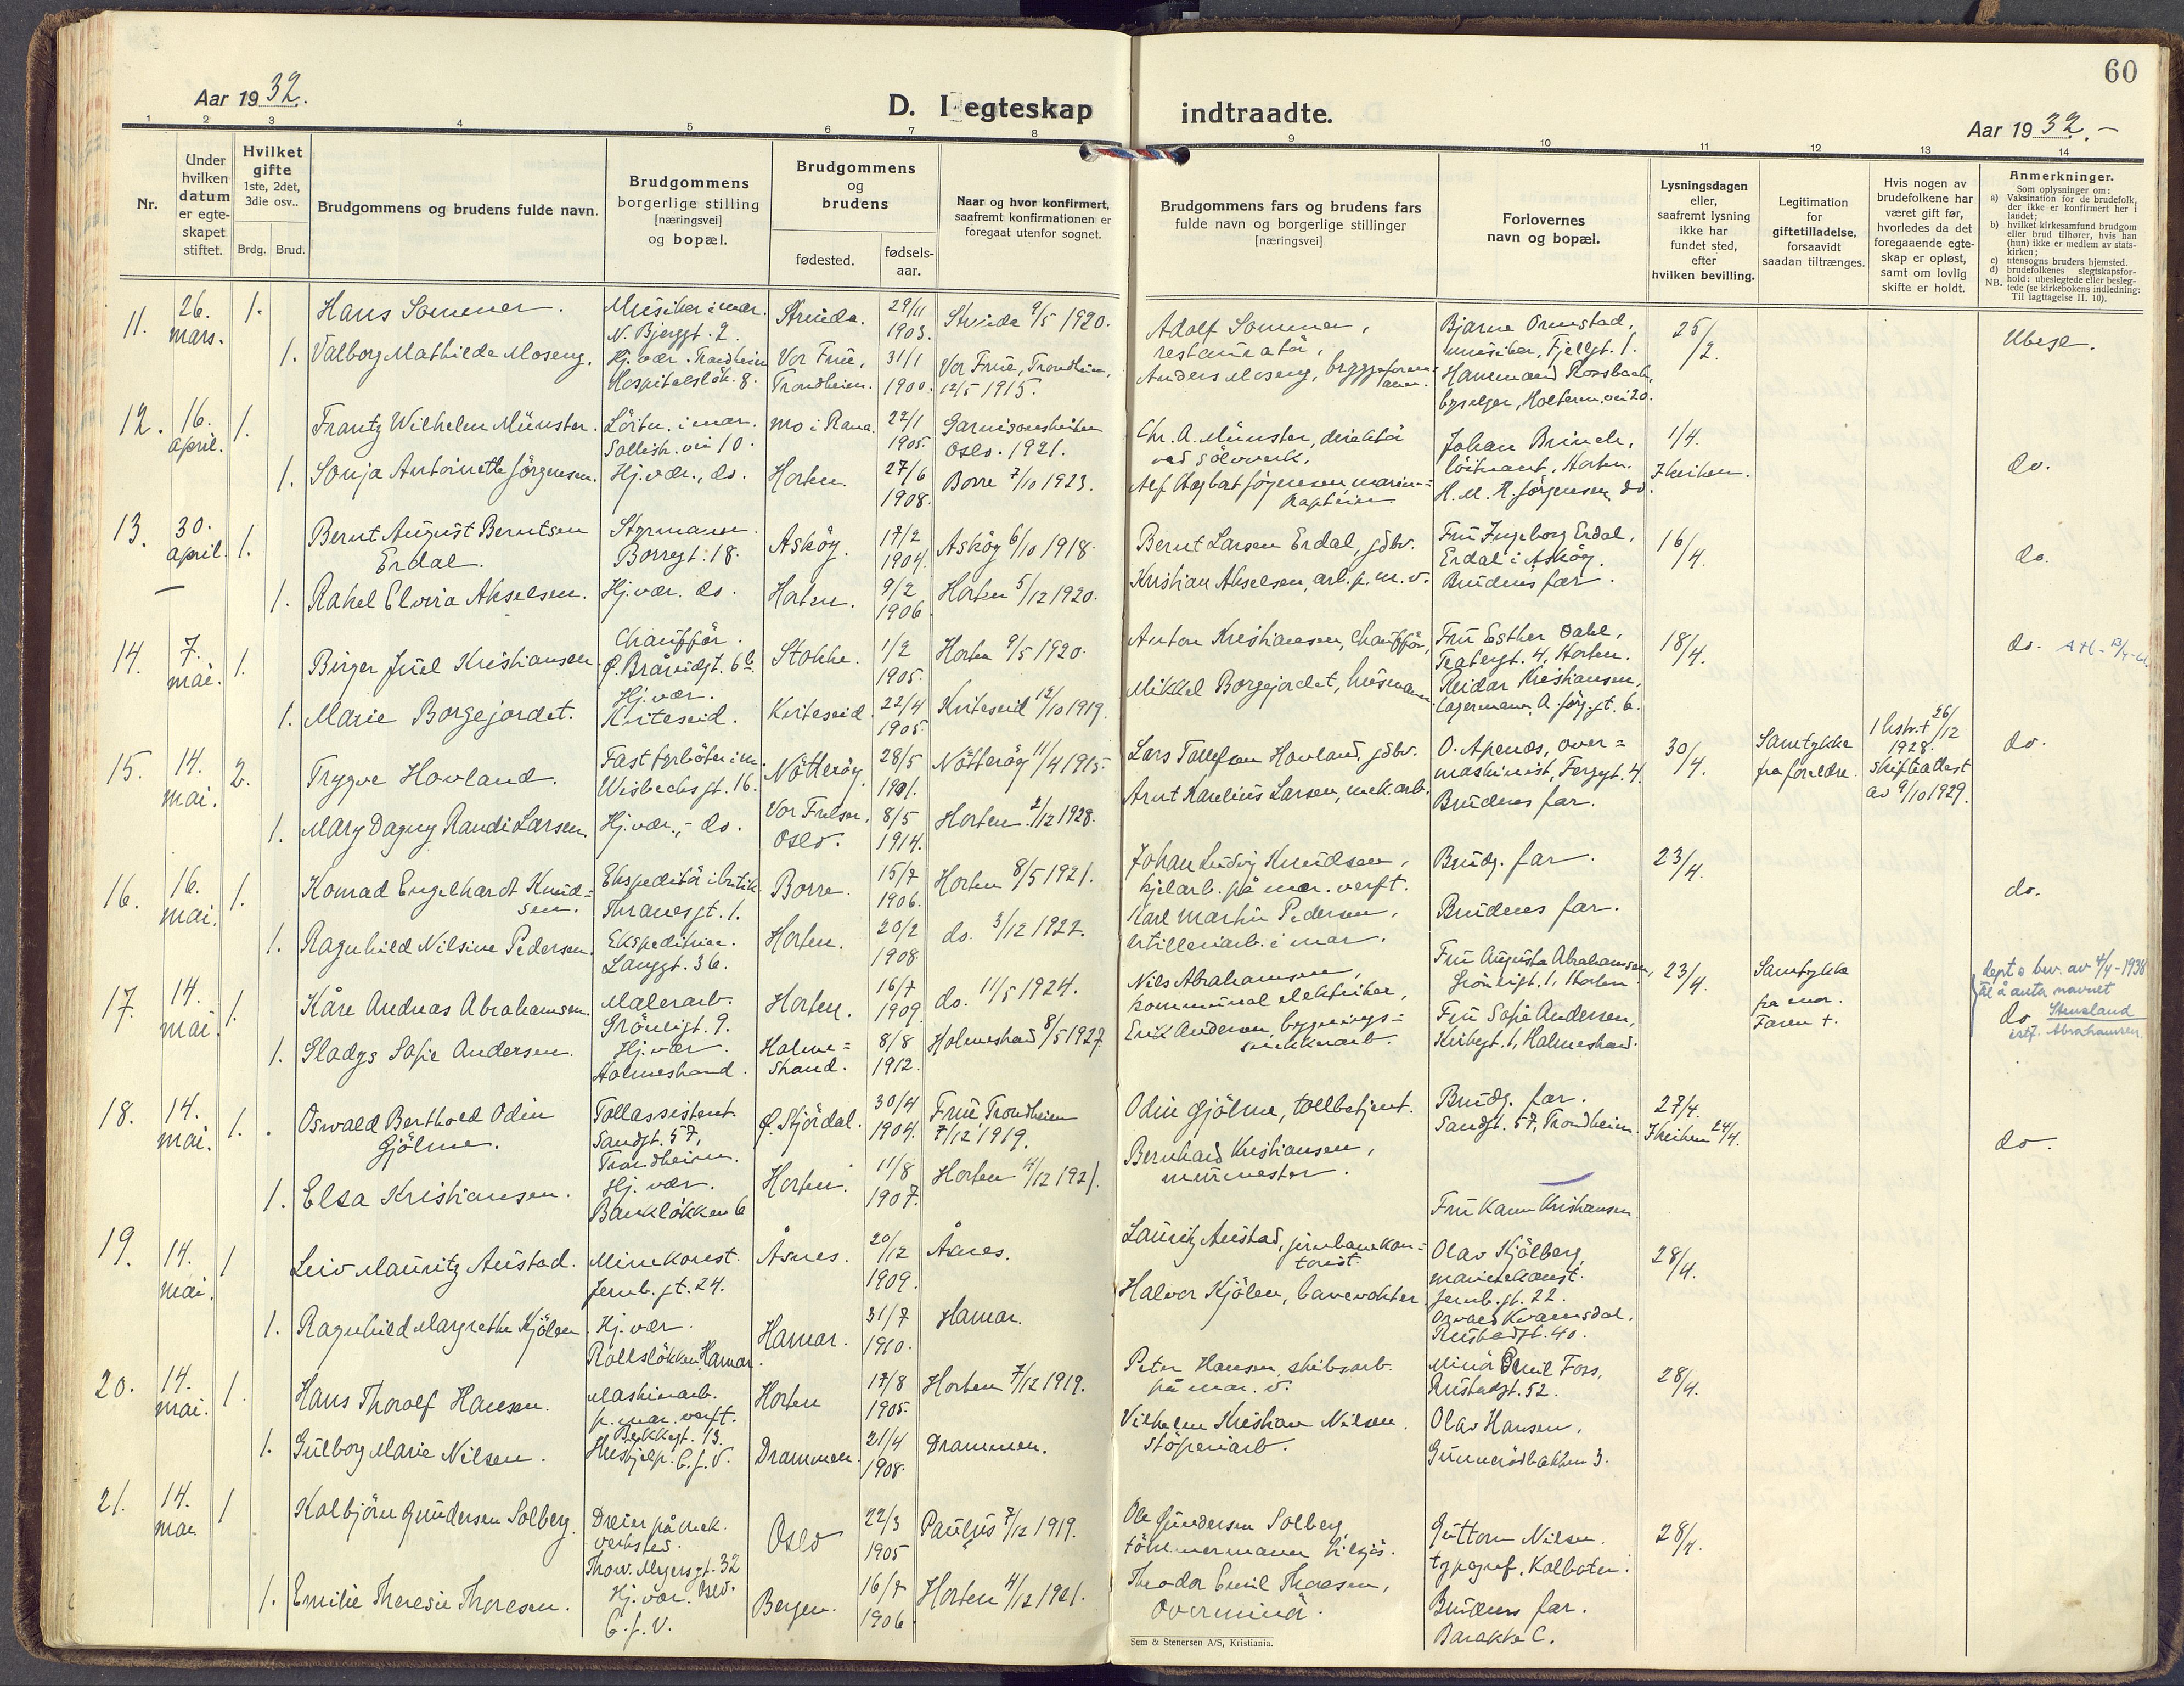 60
Aar 1932.
D. I egteskap indtraadte.
Aar 1932.-
1 2 3 4 5 6 7 8 9 10 11 12 13 14
Nr.
Under
hvilken
datum
er egte-
skapet
stiftet.
Hvilket
gifte
1ste, 2det,
3die osv..
Brdg. Brud.
Brudgommens og brudens fulde navn.
Brudgommens
borgerlige stilling
[næringsvei]
og bopæl.
Brudgommens
og
brudens
fødested.
fødsels-
aar.
Naar og hvor konfirmert,
saafremt konfirmationen er
foregaat utenfor sognet.
Brudgommens fars og brudens fars
fulde navn og borgerlige stillinger
[næringsvei]
Forlovernes
navn og bopæl.
Lysningsdagen
eller,
saafremt lysning
ikke har
fundet sted,
efter
hvilken bevilling.
Legitimation
for
giftetilladelse,
forsaavidt
saadan tiltrænges.
Hvis nogen av
brudefolkene har
været gift før,
hvorledes da det
foregaaende egte-
skap er opløst,
samt om lovlig
skifte er holdt.
Anmerkninger.
Som oplysninger om:
a) Vaksination for de brudefolk,
der ikke er konfirmert her i
landet;
b) hvilket kirkesamfund brudgom
eller brud tilhører, hvis han
(hun) ikke er medlem av stats-
kirken;
c) utensogns bruders hjemsted.
d) brudefolkenes slegtskapsfor-
hold: ubeslegtede eller besleg-
NB. tede (se kirkebokens indledning:
Til iagttagelse II. 10).
11. 26. mars. 1. Hans Sommer. Musiker i mar. N. Bjerggt. 2. Strinda. 29/11 1903. Strinda 9/5 1920. Adolf Sommer, restauratør, Bjarne Ormstad, musiker, Fjellgt. 1. 25/2. Ubesl.
1. Valborg Mathilde Moseng. Hj. vær. Trondheim Hospitalsløk. 8. Vor Frue, Trondheim. 31/1 1900. Vor Frue, Trondheim, 12/5 1915. Anders Moseng, bryggeformann. Rossbach, Holterm.vei 20.
12. 16. april. 1. Frantz Wilhelm Münster. Löitn. i mar. Sollist. vei 10. Mo i Rana. 22/1 1905. Garnisonskirken Oslo. 1921. Chr. A. Münster, direktör ved sölvverk. Johan Brinch, löitnant, Horten. 1/4. do.
1. Sonja Antoinette Jörgensen. Hj. vær., do. Horten. 27/6 1908. Borre 7/10 1923. Alf Dagbart Jörgensen marinekaptein H. M. A. Jörgensen do. I kirken.
13. 30. april. 1. Bernt August Berntsen Erdal. Styrmann. Borregt. 18. Asköy. 17/2 1904. Asköy 6/10 1918. Bernt Larsen Erdal, gdbr. Fru Ingeborg Erdal, Erdal i Asköy. 16/4. do.
1. Rakel Elvira Akselsen. Hj. vær. do. Horten. 9/2 1906. Horten 5/12 1920. Kristian Akselsen, arb. p. m. v. Brudens far.
14. 7. mai. 1. Birger Juel Kristiansen. Chauffør. Ø. Bråratgt. 6 b. Stokke. 1/2 1905. Horten 9/5 1920. Anton Kristiansen, chauffør, Fru Esther Dahl, Teatergt. 4, Horten. 18/4. do.
1. Marie Borgejordet. Hj. vær. Kviteseid. Kviteseid 22/4 1905. Kviteseid 12/10 1919. Mikkel Borgejordet, husmann Reidar Kristiansen, lagermann, A. Jörg. gt. 6.
15. 14. mai. 2. Trygve Hovland. Fast fyrböter i m. Wisbechs gt. 16. Nötteröy. 28/5 1901. Nötteröy 11/4 1915. Lars Tollefsen Hovland, gdbr. O. Apenæs, over= maskinist, Fergegt. 4. 30/4. Samtykke fra foreldre. 1 hstr. † 26/12 1928. Skifteattest av 9/10 1929. do.
1. Mary Dagny Randi Larsen. Hj. vær., - do. Vor Frelser, Oslo. 8/5 1914. Horten. 2/12 1928. Arnt Karelius Larsen, mek. arb. Brudens far.
16. 16. mai. 1. Konrad Engelhardt Knud= sen. Ekspeditør i butik. Thranesgt. 1. Borre. 15/7 1906. Horten 8/5 1921. Johan Ludvig Knudsen, kjelarb. på mar. verft. Brudg. far. 23/4. do.
1. Ragnhild Nilsine Pedersen. Ekspeditrice. Langgt. 36. Horten. 20/2 1908. do. 3/12 1922. Karl Martin Pedersen, artilleriarb. i mar. Brudens far.
17. 14. mai. 1. Kåre Andreas Abrahamsen. Malerarb. Grönligt. 9. Horten. 16/7 1909. do. 11/5 1924. Nils Abrahamsen, kommunal elektriker, Fru Augusta Abrahamsen, Grönligt. 1, Horten. 23/4. Samtykke fra mor. Faren †. dept.s bev. av 4/4-1938 til å anta navnet Stensland istf. Abrahamsen. do
1. Gladys Sofie Andersen. Hj. vær. Holmestrand. Holme= strand. 8/8 1912. Holmestrand 8/5 1927. Erik Andersen, bygnings= snekkerarb. Fru Sofie Andersen, Kirkegt. 1, Holmestrand.
18. 14. mai. 1. Oswald Berthold Odin Gjölme. Tollassistent. Sandgt. 57, Trondheim. Ø. Stjördal. 30/4 1904. Frue, Trondheim 7/12 1919. Odin Gjölme, tollbetjent. Brudg. far. Sandgt. 57, Trondheim. 27/4. I kirken 24/4. do.
1. Elsa Kristiansen. Hj. vær. Banklökken 6 Horten. 11/8 1907. Horten 4/12 1921. Bernhard Kristiansen, murmester. Fru Karen Kristiansen
19. 14. mai. 1 Leiv Mauritz Austad. Minekonst. Jernb. gt. 24. Åsnes. 20/12 1909. Åsnes. Lauritz Austad, jernbanekon= torist. Olav Kjölberg, marinekonst. Jernb. gt. 22. 28/4.
1. Ragnhild Margrethe Kjölen. Hj. vær. Rollslökken, Hamar. Hamar. 31/7 1910. Hamar. Halvor Kjölen, banevokter. Osvald Kvamsdal, Rustadgt. 40.
20. 14. mai. 1. Hans Thorolf Hansen. Maskinarb. p. mar. verft. Bekkegt. 13. Horten 17/8 1905. Horten 7/12 1919. Peter Hansen, skibsarb. på mar. v. Minør Emil Foss, Rustadgt. 52. 28/4.
1. Gulborg Marie Nilsen. Husbjelp. C. j. V. Drammen. 21/4 1908. Drammen. Vilhelm Kristian Nilsen. Störeriarb. Olav Hansen, Gunnerödbakken 3.
21. 14. mai 1 Kolbjörn Gundersen Solberg. Dreier på mek. verksted. Thorv. Meyers gt. 32 Oslo. Oslo 22/3 1905 Paulus 7/12 1919. Ole Gundersen Solberg, tömmermann Guttorm Nilsen. typograf, Kolboten. 28/4.
1. Emilie Theresie Thoresen. Hj. vær. C. j. V. Bergen. 16/7 1906. Horten 4/12 1921. Theodor Emil Thoresen, Overminör. Brudens far. Barakke C.
Sem & Stenersen A/S, Kristiania.